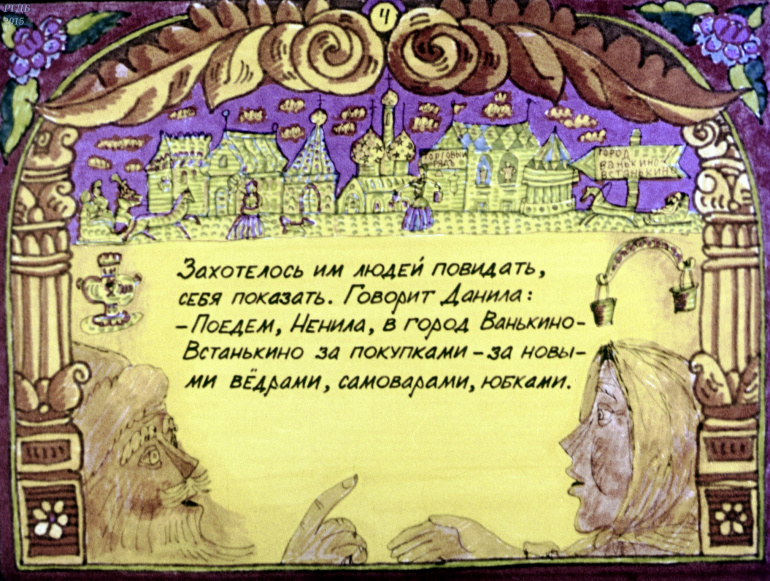 РГДБ
2015
4
ТОРГОВЫЙ
РЯДЪ
ГОРОД
ВАНЬКИНО-
ВСТАНЬКИНО
Захотелось им людей повидать,
себя показать. Говорит Данила:
– Поедем, Ненила, в город Ванькино-
Встанькино за покупками – за новы-
ми вёдрами, самоварами, юбками.